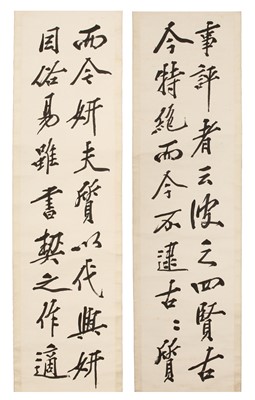 事評者云彼之四賢古
今特絕而今不逮古〻質
而今妍夫質以代興妍
因俗易雖書契之作適